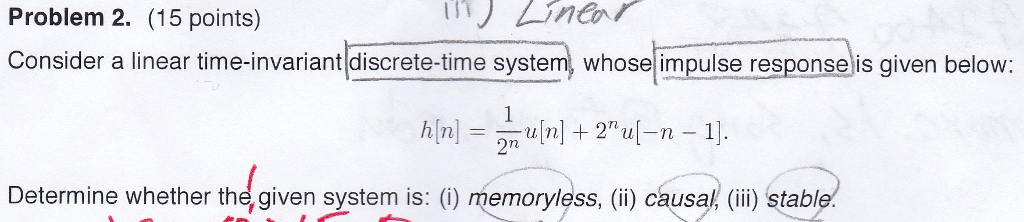 Problem 2. (15 points)
iii) Linear
Consider a linear time-invariant discrete-time system, whose impulse response is given below:
h[n] = \frac{1}{2^n}u[n] + 2^n u[−n − 1].
Determine whether the given system is: (i) memoryless, (ii) causal, (iii) stable.